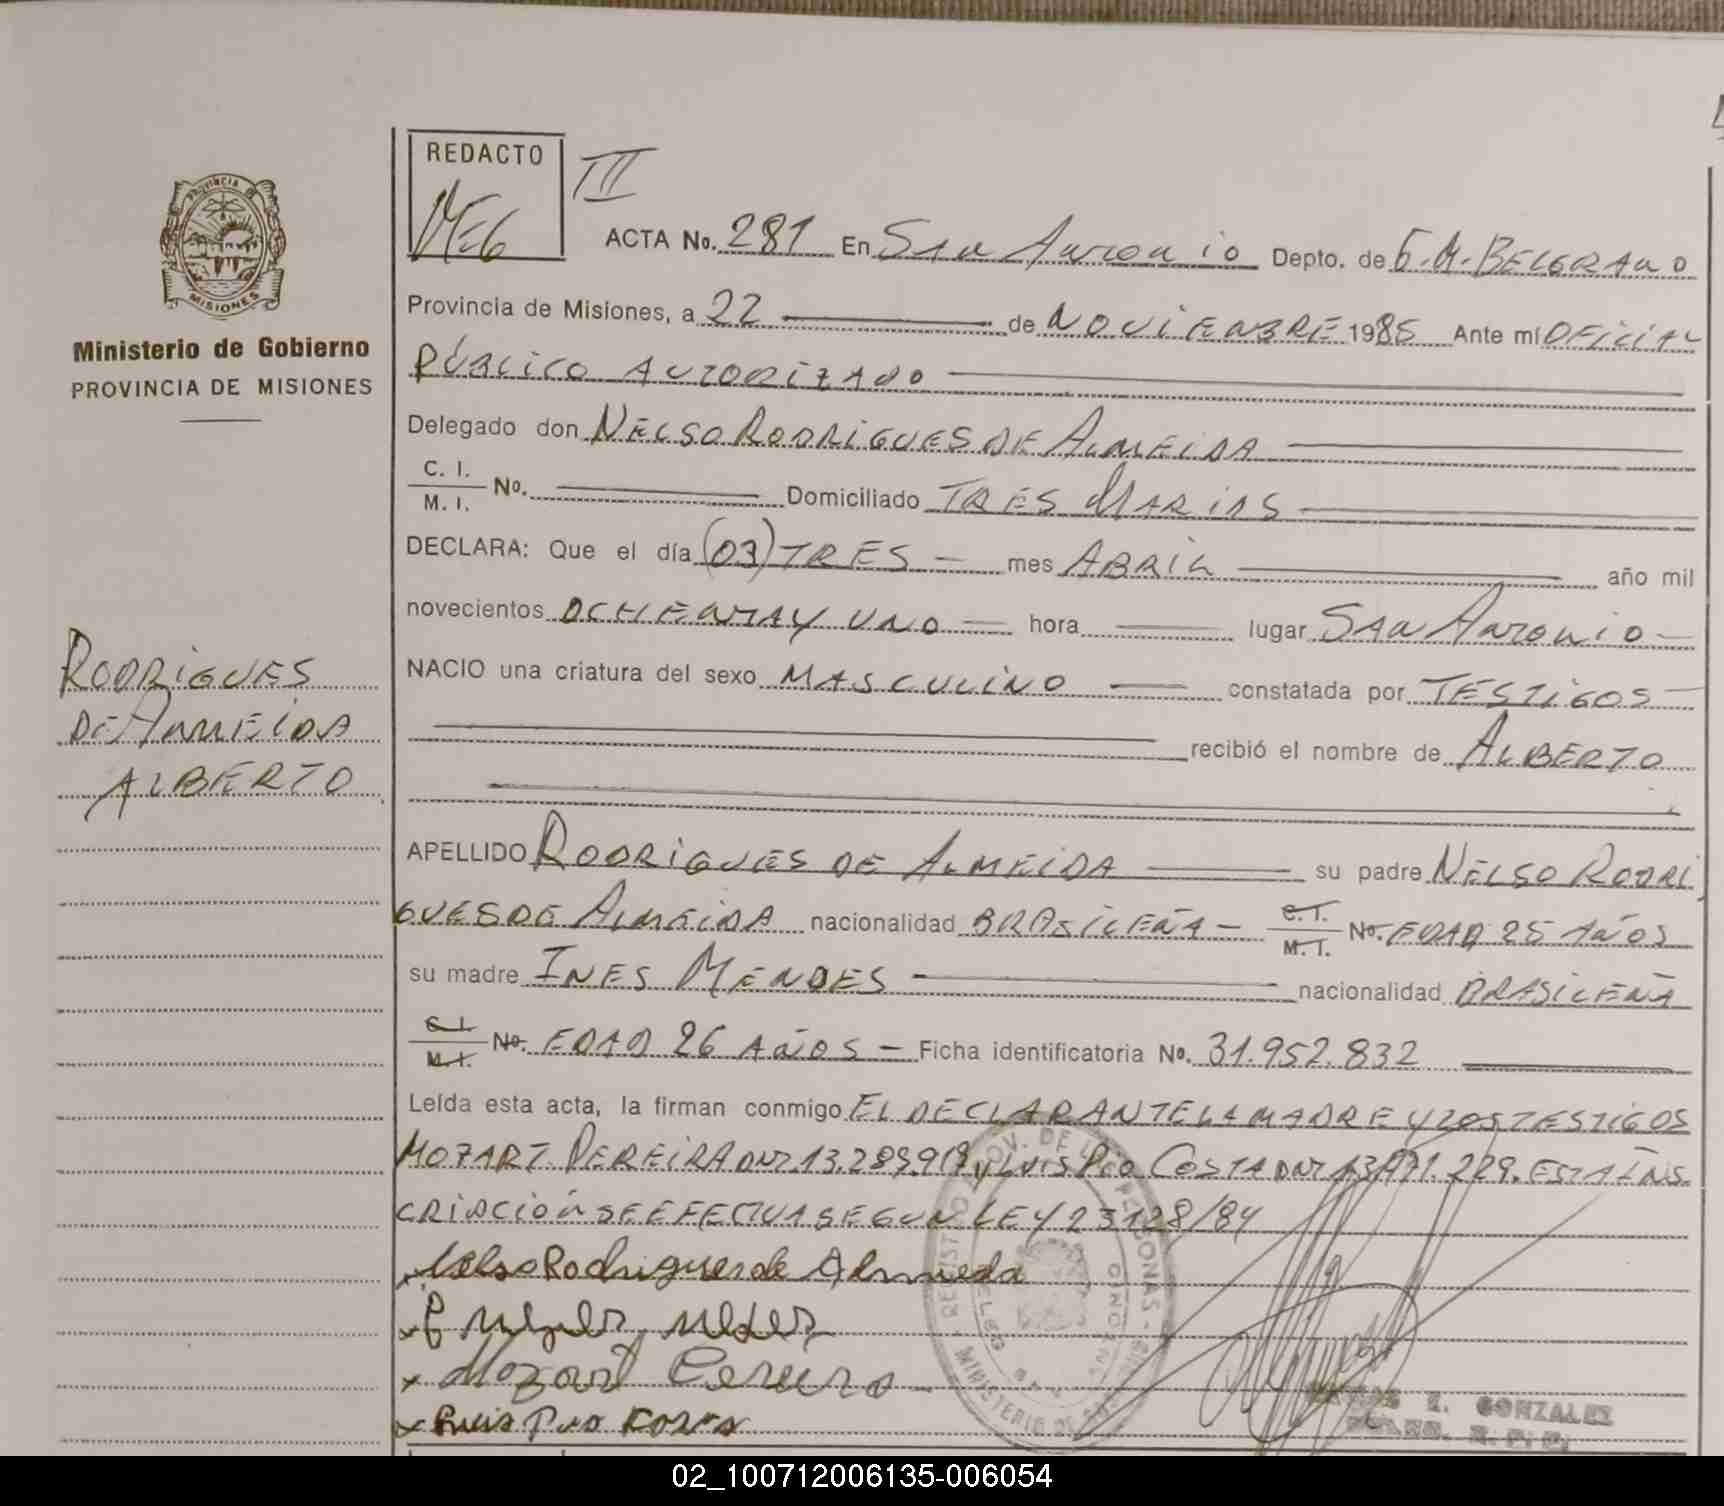 REDACTO
III
ACTA No. 281 En San Antonio Depto. de G. M. BELGRANO
Provincia de Misiones, a 22 de NOVIEMBRE 1985 Ante mí OFICIAL
PÚBLICO AUTORIZADO
Delegado don NELSO RODRIGUES DE ALMEIDA
C. I.
M. I.
No. Domiciliado TRES MARIAS
DECLARA: Que el día (03) TRES mes ABRIL año mil
novecientos OCHENTA Y UNO hora lugar SAN ANTONIO
NACIO una criatura del sexo MASCULINO constatada por TESTIGOS
recibió el nombre de ALBERTO
APELLIDO RODRIGUES DE ALMEIDA su padre NELSO RODRI
GUES DE ALMEIDA nacionalidad BRASILEÑA C. I. M. I. No. EDAD 25 AÑOS
su madre INES MENDES nacionalidad BRASILEÑA
C. I. M. I. No. EDAD 26 AÑOS Ficha identificatoria No. 31.952.832
Leída esta acta, la firman conmigo EL DECLARANTE LA MADRE Y LOS TESTIGOS
MOZART PEREIRA DNI 13.289.919 y LUIS PIO COSTA DNI ESTA INS
CRIPCIÓN SE EFECTUA SEGUN LEY 23128/84
Nelso Rodrigues de Almeida
Mozart Pereira
GONZALEZ
Provincia de
MISIONES
Ministerio de Gobierno
PROVINCIA DE MISIONES
RODRIGUES
DE ALMEIDA
ALBERTO
02_100712006135-006054